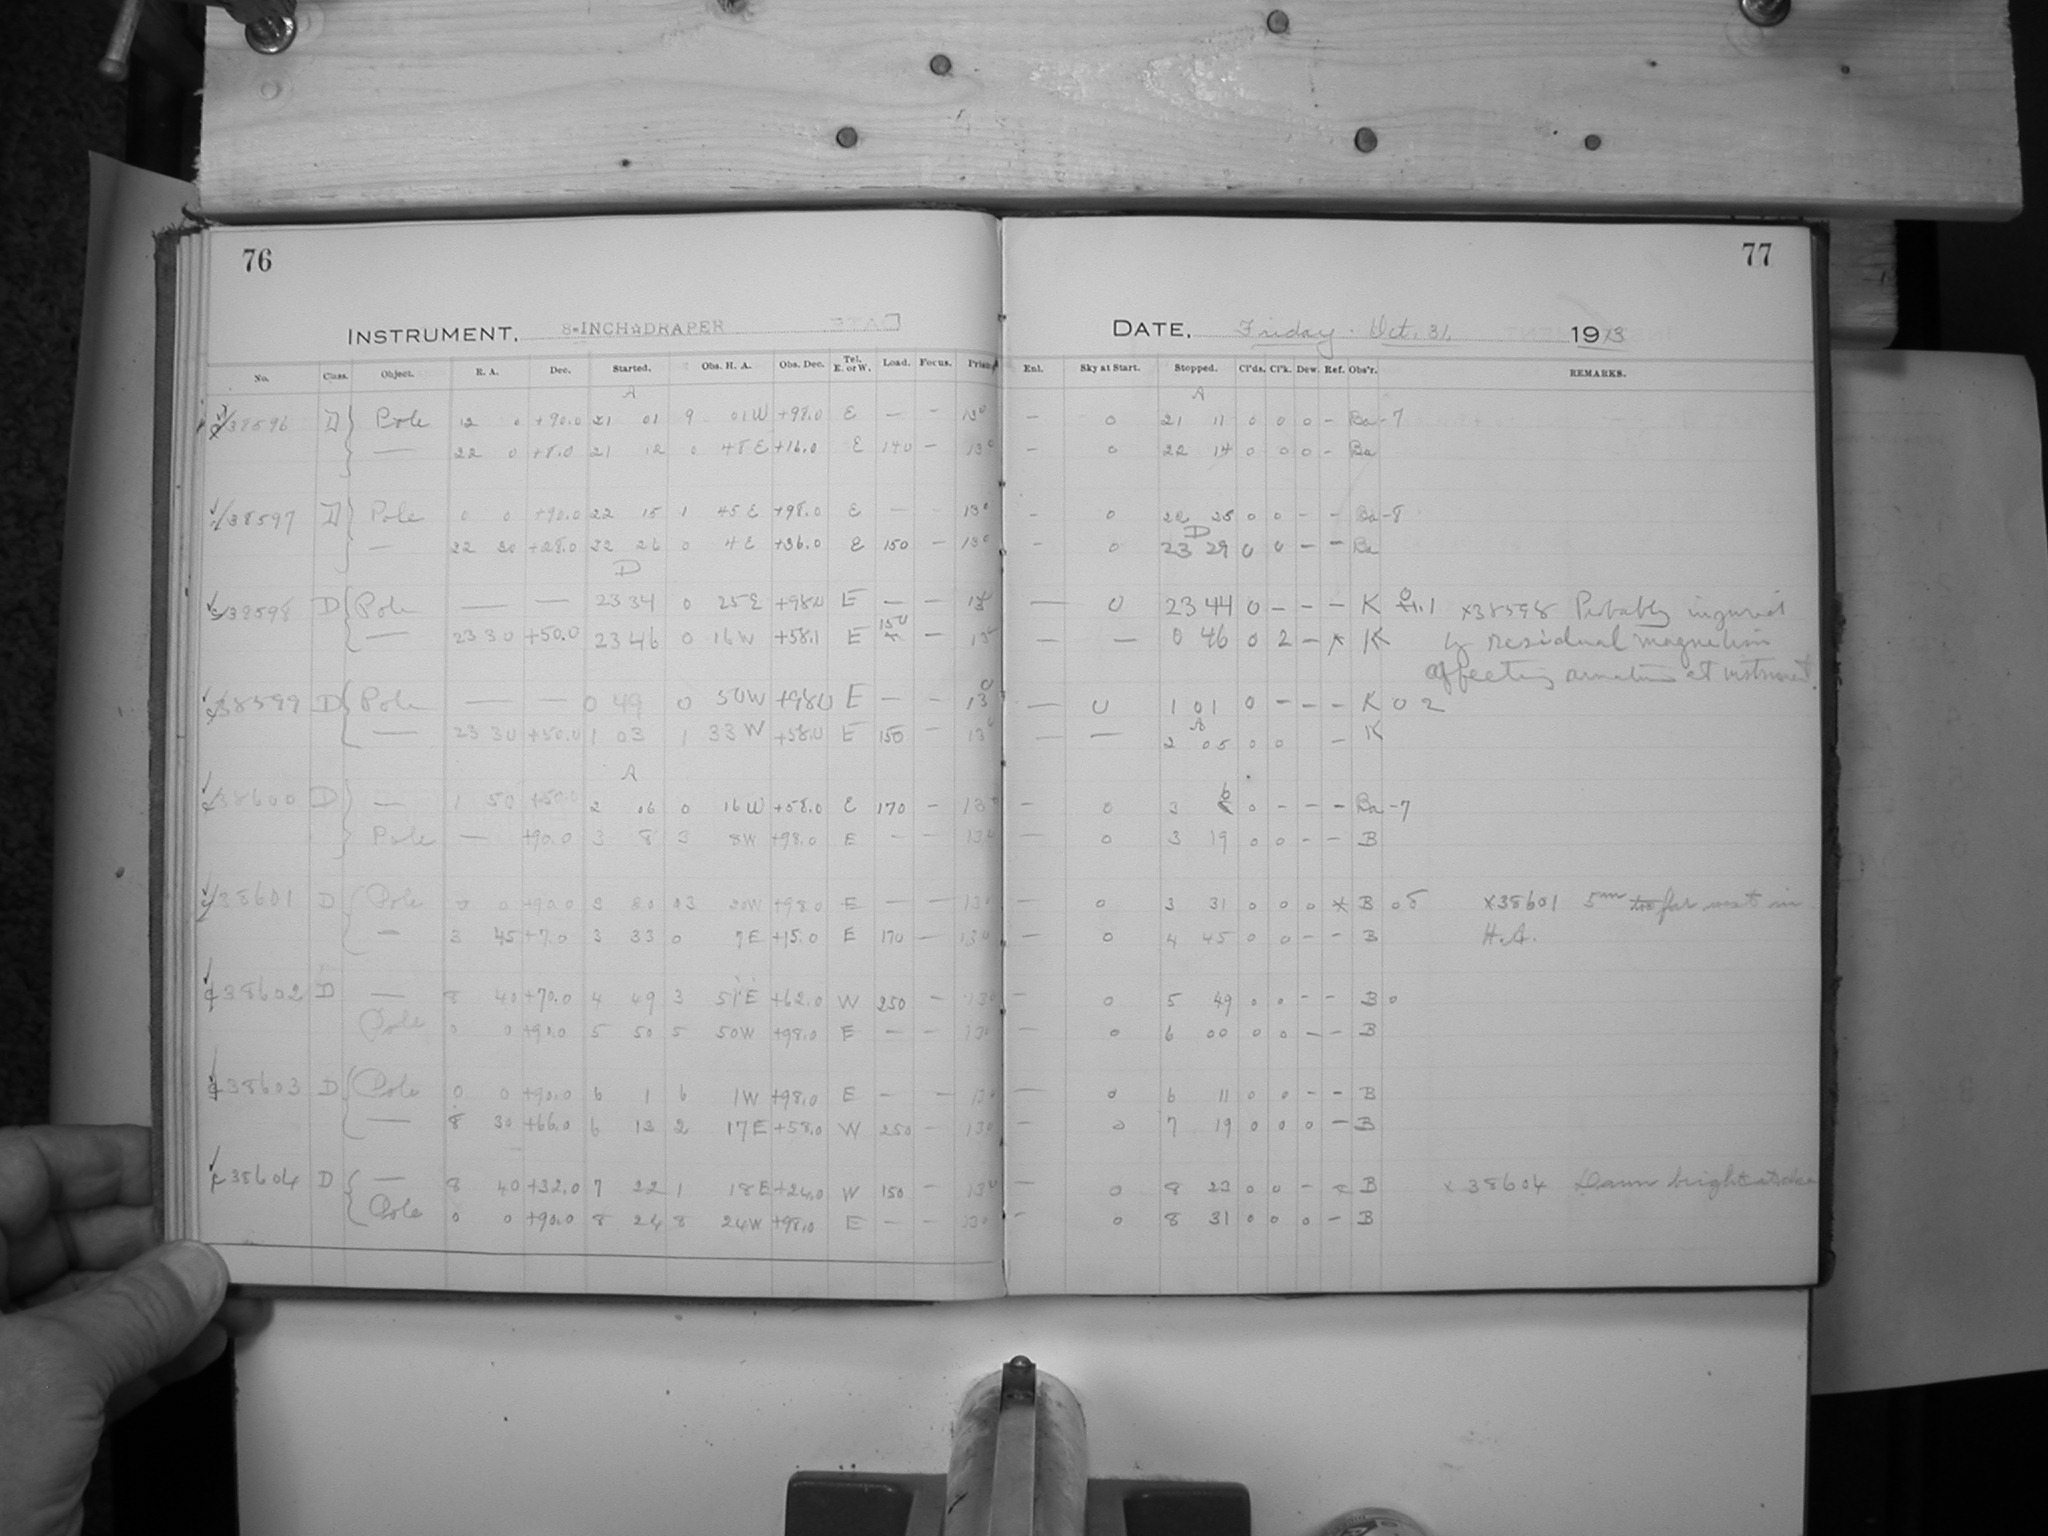 76
77
INSTRUMENT. 8-INCH DRAPER
DATE. Friday. Oct. 31, 1913
No. Class. Object. R. A. Dec. Started. Obs. H. A. Obs. Dec. Tel. E. or W. Load. Focus. Prism Enl. Sky at Start. Stopped. Cl'ds. Cl'k. Dew. Ref. Obs'r. REMARKS.
A A
38596 D Pole 12 0 +90.0 21 01 9 01W +98.0 E — - 13° — 0 21 11 0 0 0 - Ba-7
— 22 0 +8.0 21 12 0 48E +16.0 E 140 - 13° — 0 22 14 0 0 0 - Ba
38597 D Pole 0 0 +90.0 22 15 1 45E +98.0 E — - 13° — 0 22 25 0 0 - - Ba-8
D
— 22 30 +28.0 22 26 0 4E +36.0 E 150 - 13° — 0 23 29 0 0 - - Ba
D
38598 D Pole — — 23 34 0 25E +98.0 E — - 13° — 0 23 44 0 - - - K x38598 Probably injured
— 23 30 +50.0 23 46 0 16W +58.1 E 150 - 13° — — 0 46 0 2 - x K by residual magnetism
affecting armature at instrument.
38599 D Pole — — 0 49 0 50W +98.0 E — - 13° — 0 1 01 0 - - - K 0 2
A
— 23 30 +50.0 1 03 1 33W +58.0 E 150 - 13° — — 2 05 0 0 - K
A
38600 D — 1 50 +50.0 2 06 0 16W +58.0 E 170 - 13° — 0 3 6 0 - - - Ba-7
Pole — +90.0 3 8 3 8W +98.0 E — - 13° — 0 3 19 0 0 - - B
38601 D Pole 0 0 +90.0 3 20 3 20W +98.0 E — - 13° — 0 3 31 0 0 0 x B 08 x38601 5m too far west in
— 3 45 +7.0 3 33 0 7E +15.0 E 170 - 13° — 0 4 45 0 0 - - B H.A.
38602 D — 8 40 +70.0 4 49 3 51E +62.0 W 250 - 13° — 0 5 49 0 0 - - B 0
Pole 0 0 +90.0 5 50 5 50W +98.0 E — - 13° — 0 6 00 0 0 - - B
38603 D Pole 0 0 +90.0 6 1 6 1W +98.0 E — - 13° — 0 6 11 0 0 - - B
— 8 30 +66.0 6 13 2 17E +58.0 W 250 - 13° — 0 7 19 0 0 0 - B
38604 D — 8 40 +32.0 7 22 1 18E +24.0 W 150 - 13° — 0 8 23 0 0 - x B x 38604 Dawn bright at close
Pole 0 0 +90.0 8 24 8 24W +98.0 E — - 13° - 0 8 31 0 0 0 - B